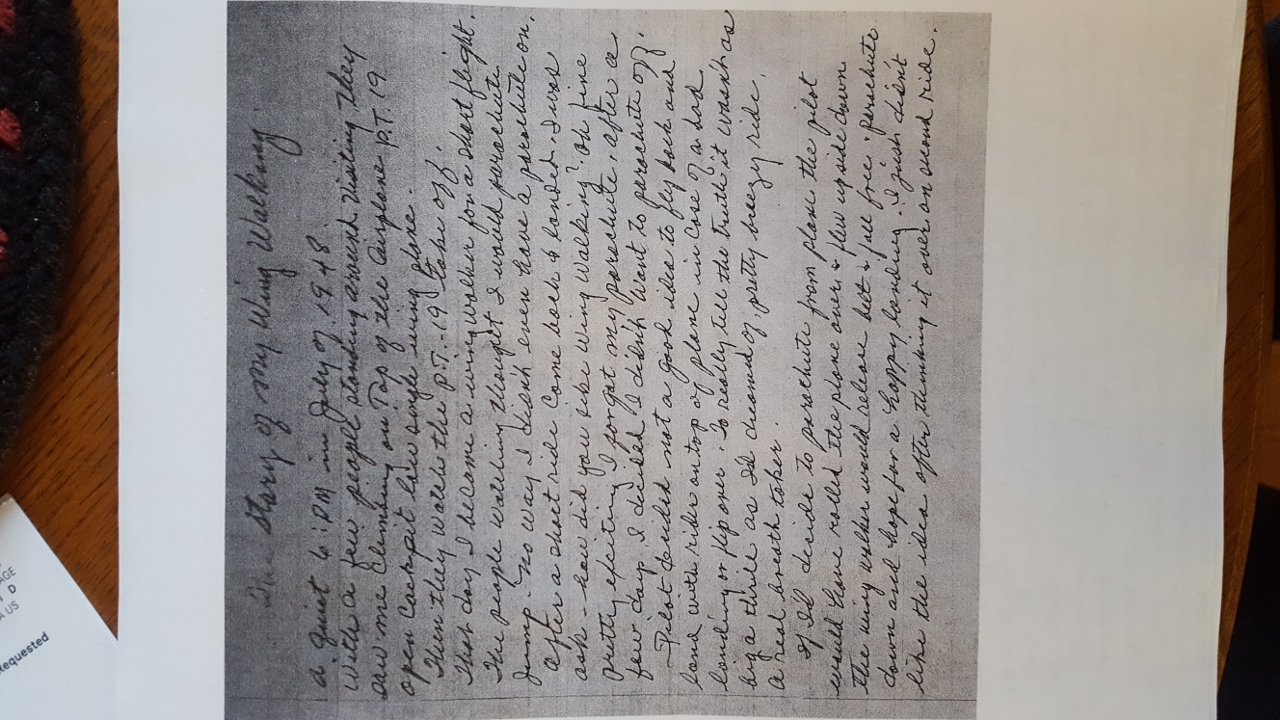 The Story of my Wing Walking.
a quiet 6:PM in July of 1948.
With a few people standing around visiting they
saw me climbing on Top of the airplane P.T. 19
open cockpit low single wing plane.
Then they watch the P.T.-19 take off.
That day I become a wing walker for a short flight.
The people watching thought I would parachute
Jump - no way I didn't even have a parachute on.
after a short ride come back & landed. I was
ask - how did you like wing walking? oh fine
pretty exciting I forgot my parachute. after a
few days I decided I didn't want to parachute off.
Pilot decided not a good idea to fly back and
land with rider on top of plane in case of a bad
landing or flip over. To really tell the truth it wasn't as
big a thrill as I'd dreamed of, pretty breezy ride,
a real breath taker.
If I'd decide to parachute from plane the pilot
would have rolled the plane over & flew upside down
the wing walker would release belt & fall free & parachute
down and hope for a happy landing. I just didn't
like the idea after thinking it over on second ride.
AGE
D
A US
equested